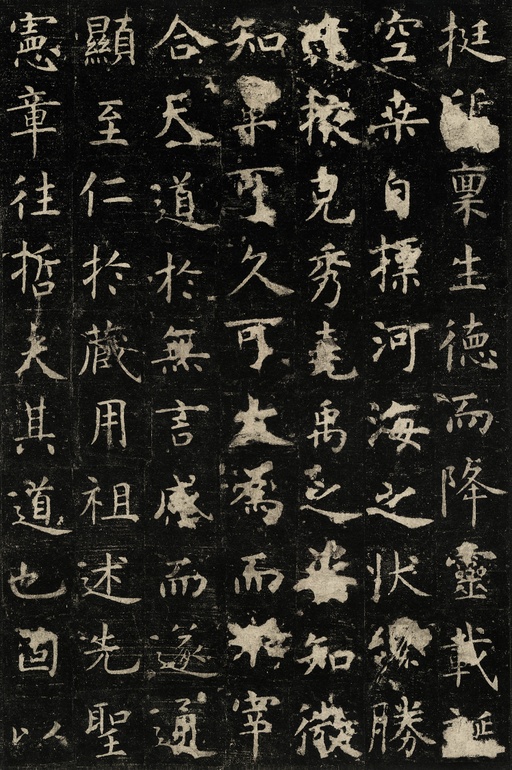 挺質稟生德而降靈載誕
空桒自標河海之狀纔勝
逢掖克秀堯禹之姿知微
知章可久可大爲而不宰
合天道於無言感而遂通
顯至仁於藏用祖述先聖
憲章往哲夫其道也固以